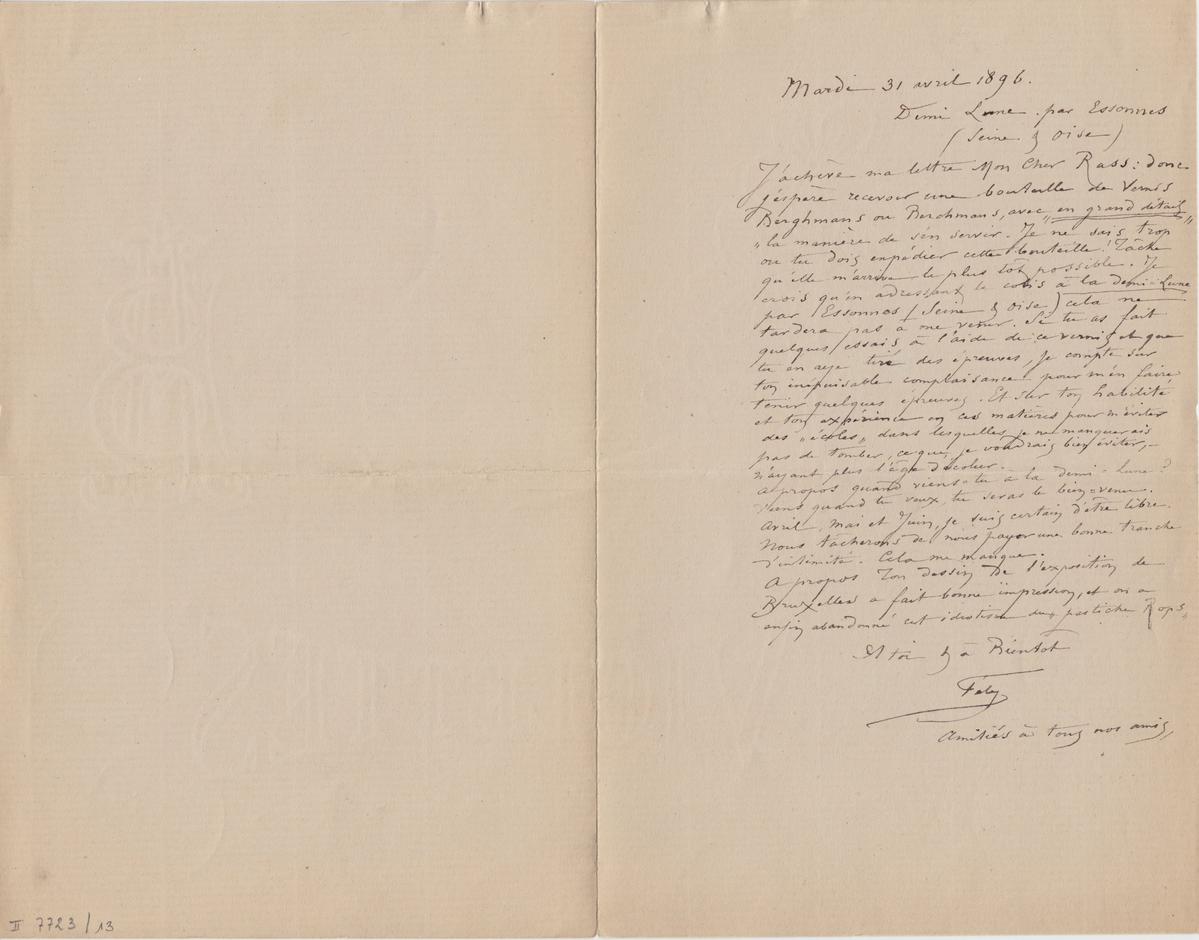 Mardi 31 avril 1896.
Demi Lune. par Essonnes
(Seine & Oise)
J'achève ma lettre Mon Cher Rass: donc
j'espère recevoir une bouteille de Vernis
Berghmans ou Berchmans, avec „en grand détail„
„la manière de s'en servir. Je ne sais trop
ou tu dois expédier cette bouteille! Tâche
qu'elle m'arrive le plus tôt possible. Je
crois qu'en adressant le colis à la demi-Lune
par Essonnes (Seine & Oise) cela ne
tardera pas à me venir. Si tu as fait
quelques essais à l'aide de ce vernis et que
tu en aye tiré des épreuves, je compte sur
ton inépuisable complaisance pour m'en faire
tenir quelques épreuves. Et sur ton habilité
et ton expérience en ces matières pour m'éviter
des „écoles„ dans lesquelles je ne manquerais
pas de tomber, ce que je voudrais bien éviter,-
n'ayant plus l'âge d'écolier.-
A propos quand viens-tu à la demi-Lune?
Viens quand tu veux, tu seras le bien-venu.
Avril, Mai et Juin, je suis certain d'être libre.
Nous tâcherons de nous payer une bonne tranche
d'intimité. Cela me manque.
A propos Ton dessin De l'exposition de
Bruxelles a fait bonne impression, et on a
enfin abandonné cet idiotisme du „pastiche Rops„
A toi & à Bientot
Fély
Amitiés à tous nos amis,
II 7723/13